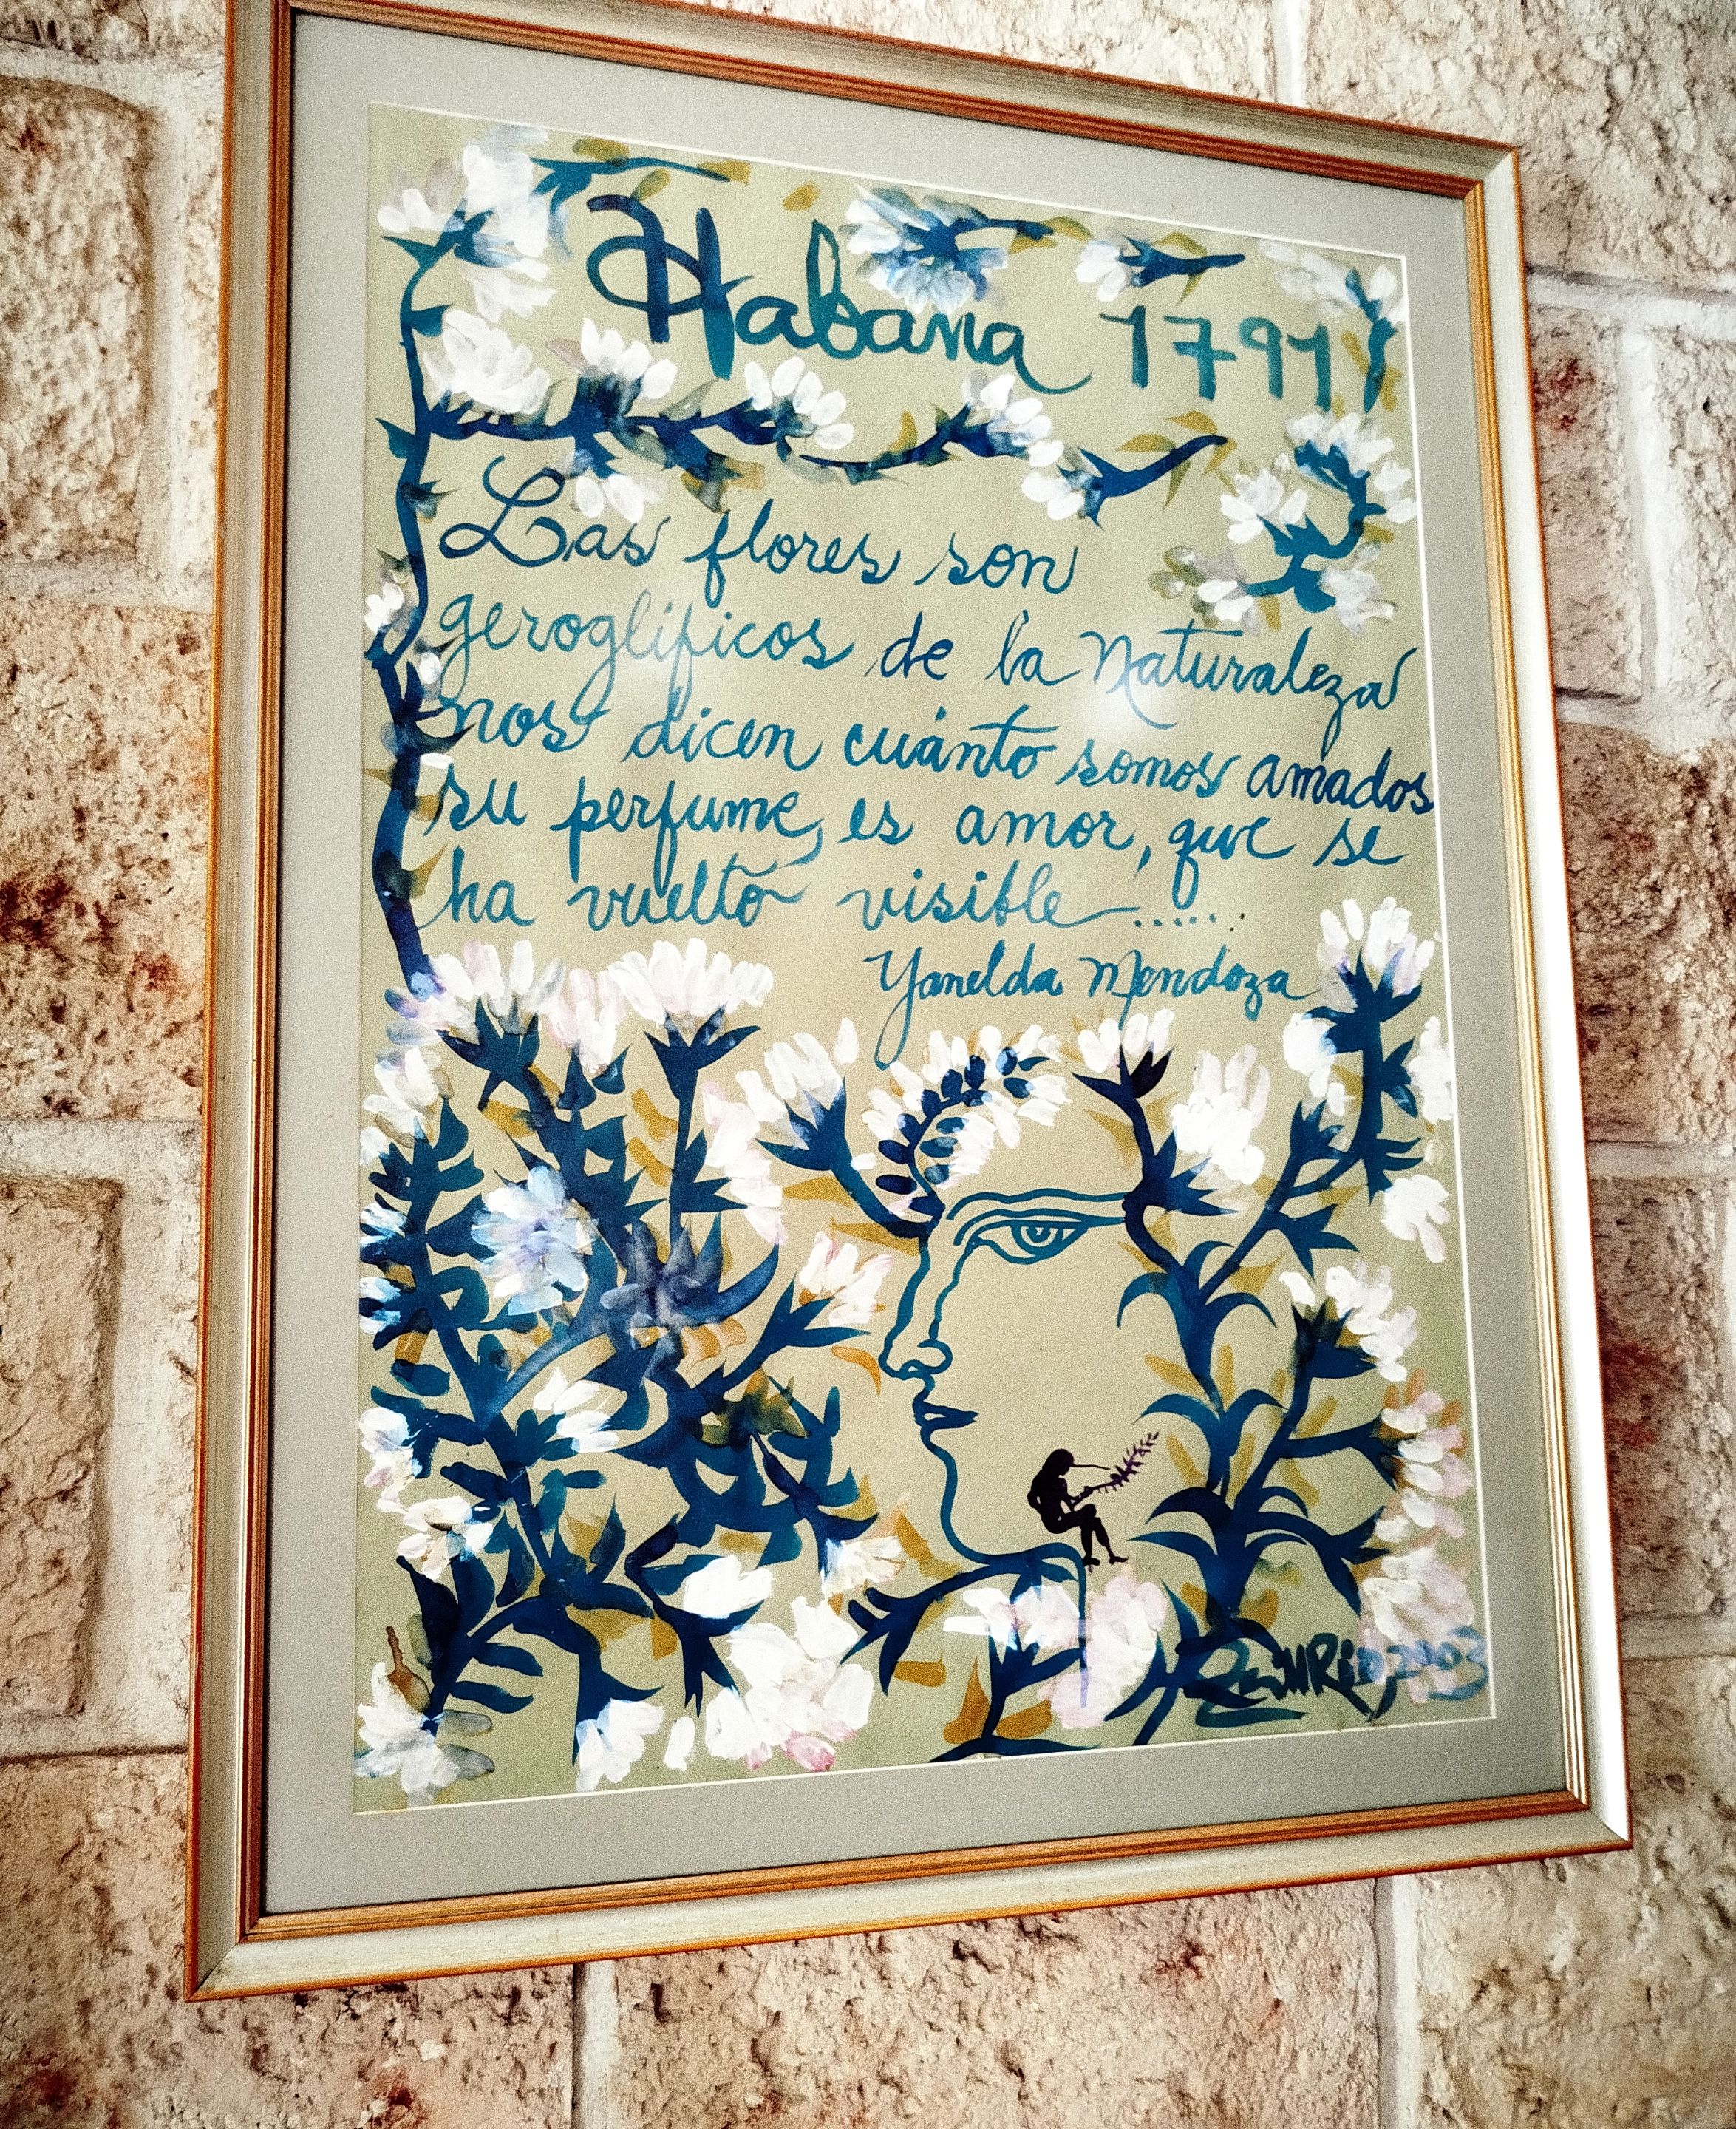 Habana 1791
Las flores son
geroglificos de la Naturaleza
nos dicen cuánto somos amados
su perfume, es amor, que se
ha vuelto visible......
Yanelda Mendoza
2003